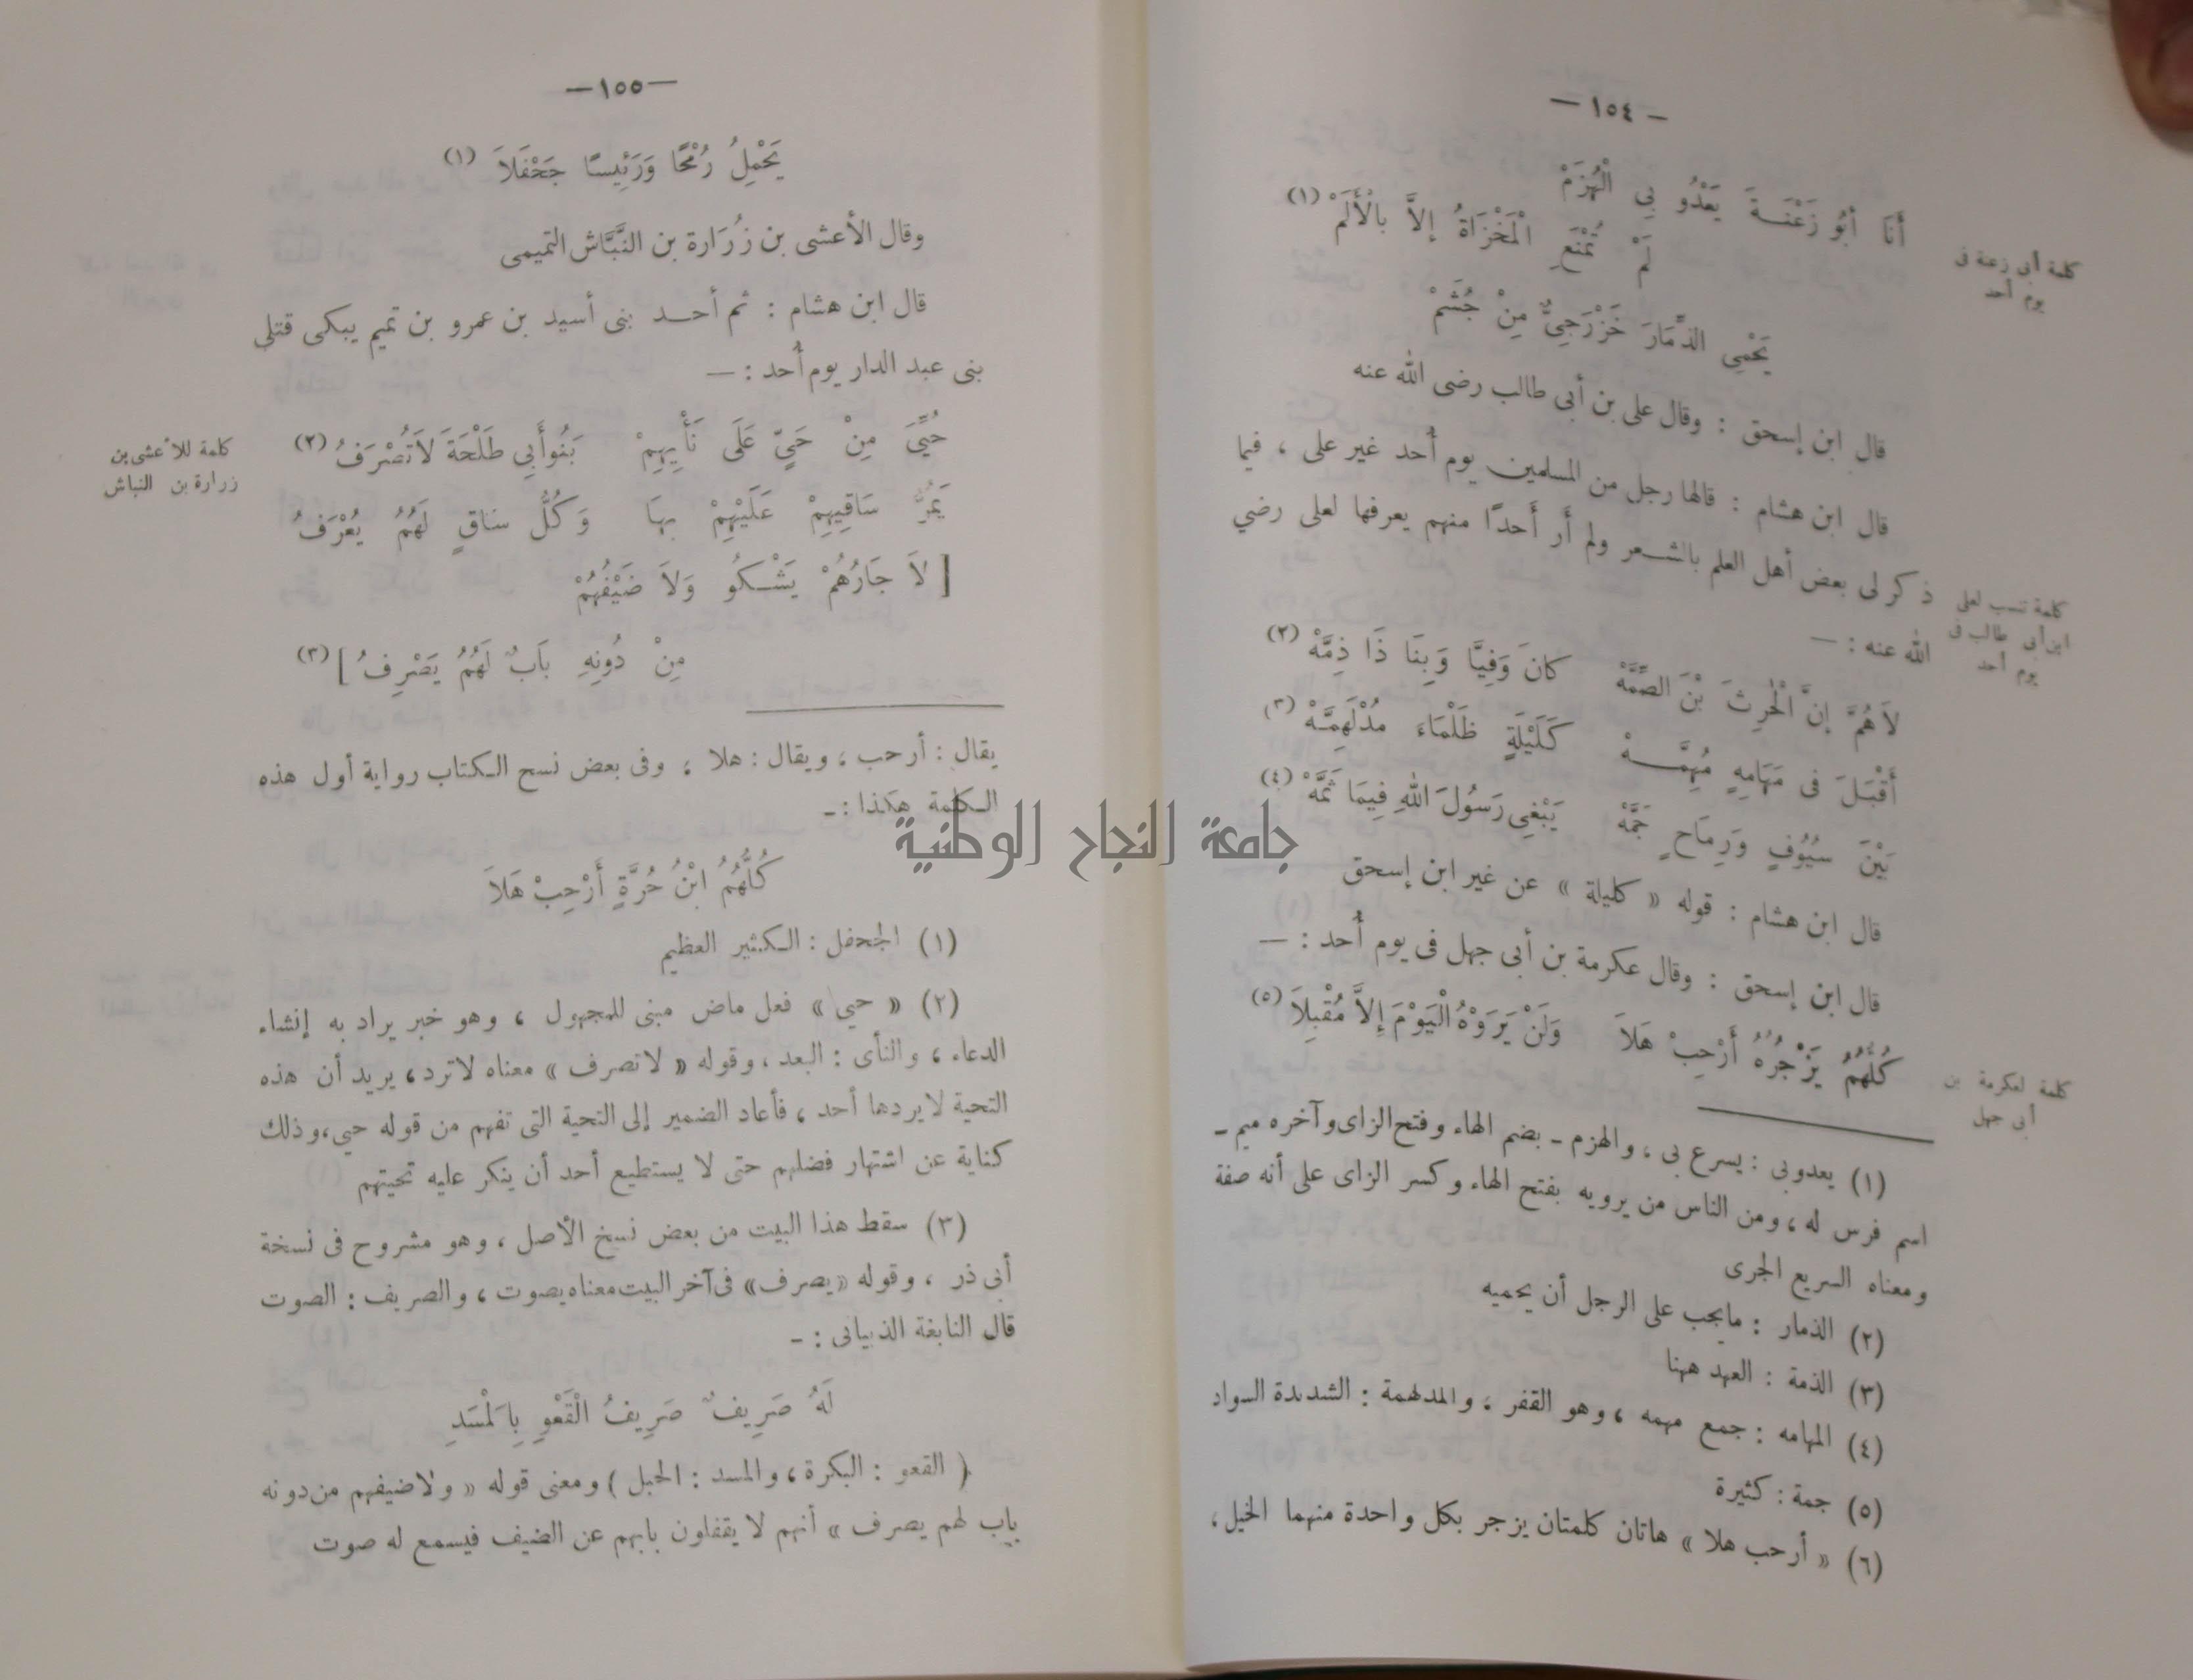 — ١٥٤ —
أَنَا أَبُو زَعْنَـةَ يَعْدُو بِي الْهُزَمْ
لَمْ تُمْنَعِ الْمَخْزَاةُ إلاَّ بالْأَلَمْ (١)
يَحْمِى الذَّمَارَ خَزْرَجِىٌّ مِنْ جُشَمْ
كلمة أبى زعنة فى
يوم أحد
قال ابن إسحق : وقال على بن أبى طالب رضى الله عنه
قال ابن هشام : قالها رجل من المسلمين يوم أُحد غير على ، فيما
ذكر لى بعض أهل العلم بالشـعر ولم أَر أَحدًا منهم يعرفها لعلى رضي
الله عنه : —
كلمة تنسب لعلى
ابن أبى طالب فى
يوم أحد
لاَهُمَّ إنَّ الْحٰرِثَ بْنَ الصِّمَّهْ كانَ وَفِيًّا وَبِنَا ذَا ذِمَّهْ (٢)
أَقْبَلَ فى مَهَامِهٍ مُهِمَّـهْ كَلَيْلَةٍ ظَلْمَاءَ مُدْلَهِمَّهْ (٣)
بَيْنَ سُيُوفٍ وَرِمَاحٍ جَمَّهْ يَبْغِى رَسُولَ اللهِ فِيمَا ثَمَّهْ (٤)
قال ابن هشام : قوله « كليلة » عن غير ابن إسحق
قال ابن إسحق : وقال عكرمة بن أبى جهل فى يوم أُحد : —
كُلُّهُمُ يَزْجُرُهُ أَرْحِبْ هَلاَ وَلَنْ يَرَوْهُ الْيَوْمَ إلاَّ مُقْبِلاَ (٥)
كلمة لعكرمة بن
أبى جهل
(١) يعدوبى : يسرع بى ، والهزم ـ بضم الهاء وفتح الزاى وآخره ميم ـ
اسم فرس له ، ومن الناس من يرويه بفتح الهاء وكسر الزاى على أنه صفة
ومعناه السريع الجرى
(٢) الذمار : مايجب على الرجل أن يحميه
(٣) الذمة : العهد ههنا
(٤) المهامه : جمع مهمه ، وهو القفر ، والمدلهمة : الشديدة السواد
(٥) جمة : كثيرة
(٦) « أرحب هلا » هاتان كلمتان يزجر بكل واحدة منهما الخيل ،
— ١٥٥ —
يَحْمِلُ رُمْحًا وَرَئِيسًا جَحْفَلاَ (١)
وقال الأعشى بن زُرَارة بن النَّبَّاش التميمى
قال ابن هشام : ثم أحـد بنى أسيد بن عمرو بن تميم يبكى قتلى
بنى عبد الدار يوم أُحد : —
حُيِّىَ مِنْ حَيٍّ عَلَى نَأْيِهِمْ بَنُو أَبِي طَلْحَةَ لاَ تُصْرَفُ (٢)
كلمة للأعشى بن
زرارة بن النباش
يَمُرُّ سَاقِيهِمْ عَلَيْهِمْ بِهَا وَكُلُّ سَاقٍ لَهُمُ يُعْرَفُ
[ لاَ جَارُهُمْ يَشْـكُو وَلاَ ضَيْفُهُمْ
مِنْ دُونِهِ بَابٌ لَهُمُ يَصْرِفُ ] (٣)
يقال : أرحب ، ويقال : هلا ؛ وفى بعض نسخ الـكتاب رواية أول هذه
الـكلمة هكذا : ـ
كُلُّهُمُ ابْنُ حُرَّةٍ أَرْحِبْ هَلاَ
(١) الجحفل : الـكثير العظيم
(٢) « حيى » فعل ماض مبنى للمجهول ، وهو خبر يراد به إنشاء
الدعاء ، والنأى : البعد ، وقوله « لا تصرف » معناه لا ترد ، يريد أن هذه
التحية لا يردها أحد ، فأعاد الضمير إلى التحية التى تفهم من قوله حيى ، وذلك
كناية عن اشتهار فضلهم حتى لا يستطيع أحد أن ينكر عليه تحيتهم
(٣) سقط هذا البيت من بعض نسخ الأصل ، وهو مشروح فى نسخة
أبى ذر ، وقوله « يصرف » فى آخر البيت معناه يصوت ، والصريف : الصوت
قال النابغة الذبيانى : ـ
لَهُ صَرِيفٌ صَرِيفُ الْقَعْوِ بِالْمَسَدِ
( القعو : البكرة ، والمسد : الحبل ) ومعنى قوله « ولا ضيفهم من دونه
باب لهم يصرف » أنهم لا يقفلون بابهم عن الضيف فيسمع له صوت
جامعة النجاح الوطنية